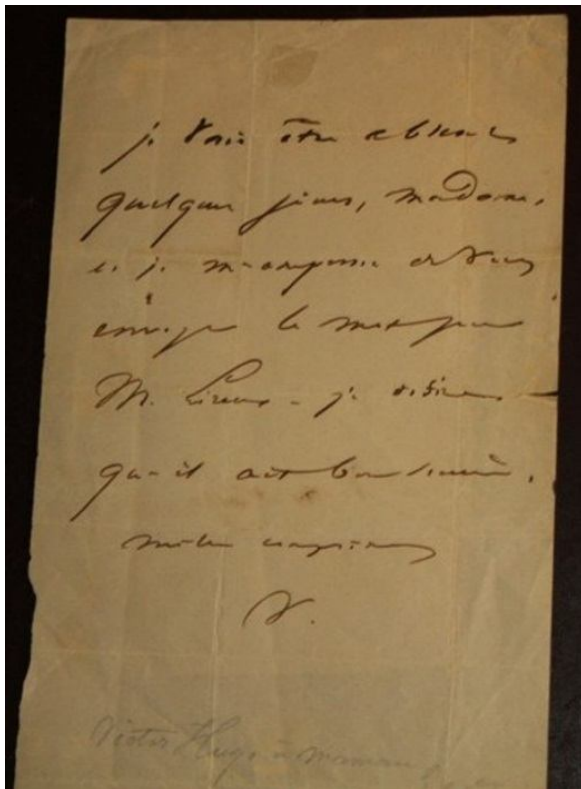 je vais être absent
quelques jours, madame,
et je m'empresse de vous
envoyer le mot pour
M. Lireux - je désire
qu'il ait bon succès.
mille compliments
V.
Victor Hugo à maman